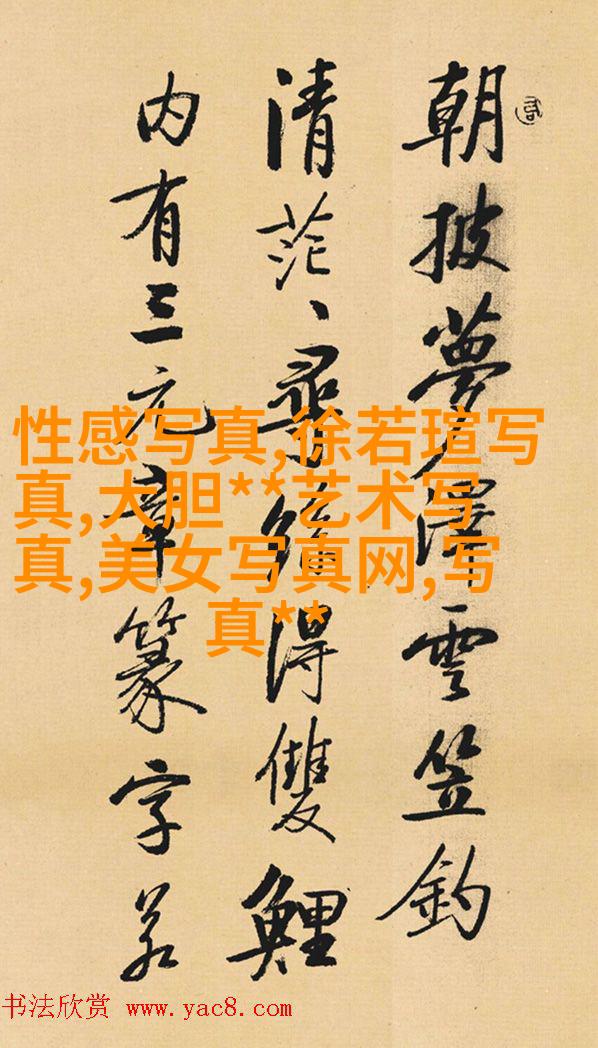 朝披夢澤雲笠釣
清茫、尋絲得雙鯉
内有三元章篆字若
性感写真,徐若瑄写
真,大胆**艺术写
真,美女写真网,写
真**
书法欣赏 www.yac8.com